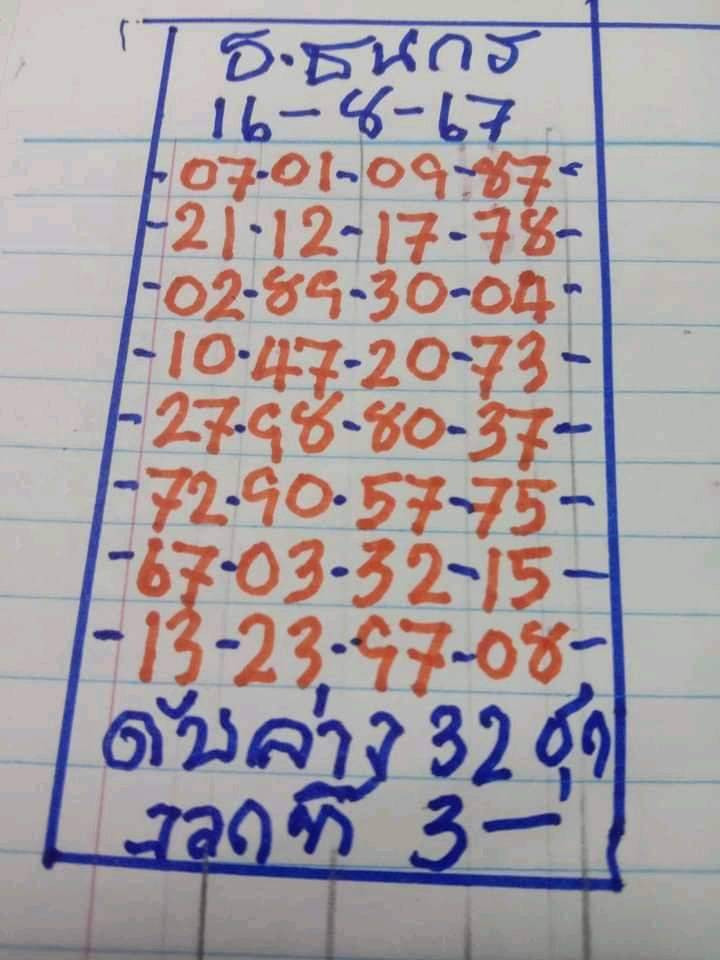 ธ.ธนกร
16-8-67
-07-01-09-87-
-21-12-17-78-
-02-89-30-04-
-10-47-20-73-
-27-98-80-37-
-72-90-57-75-
-67-03-32-15-
-13-23-97-08-
ดับล่าง 32 ชุด
3-